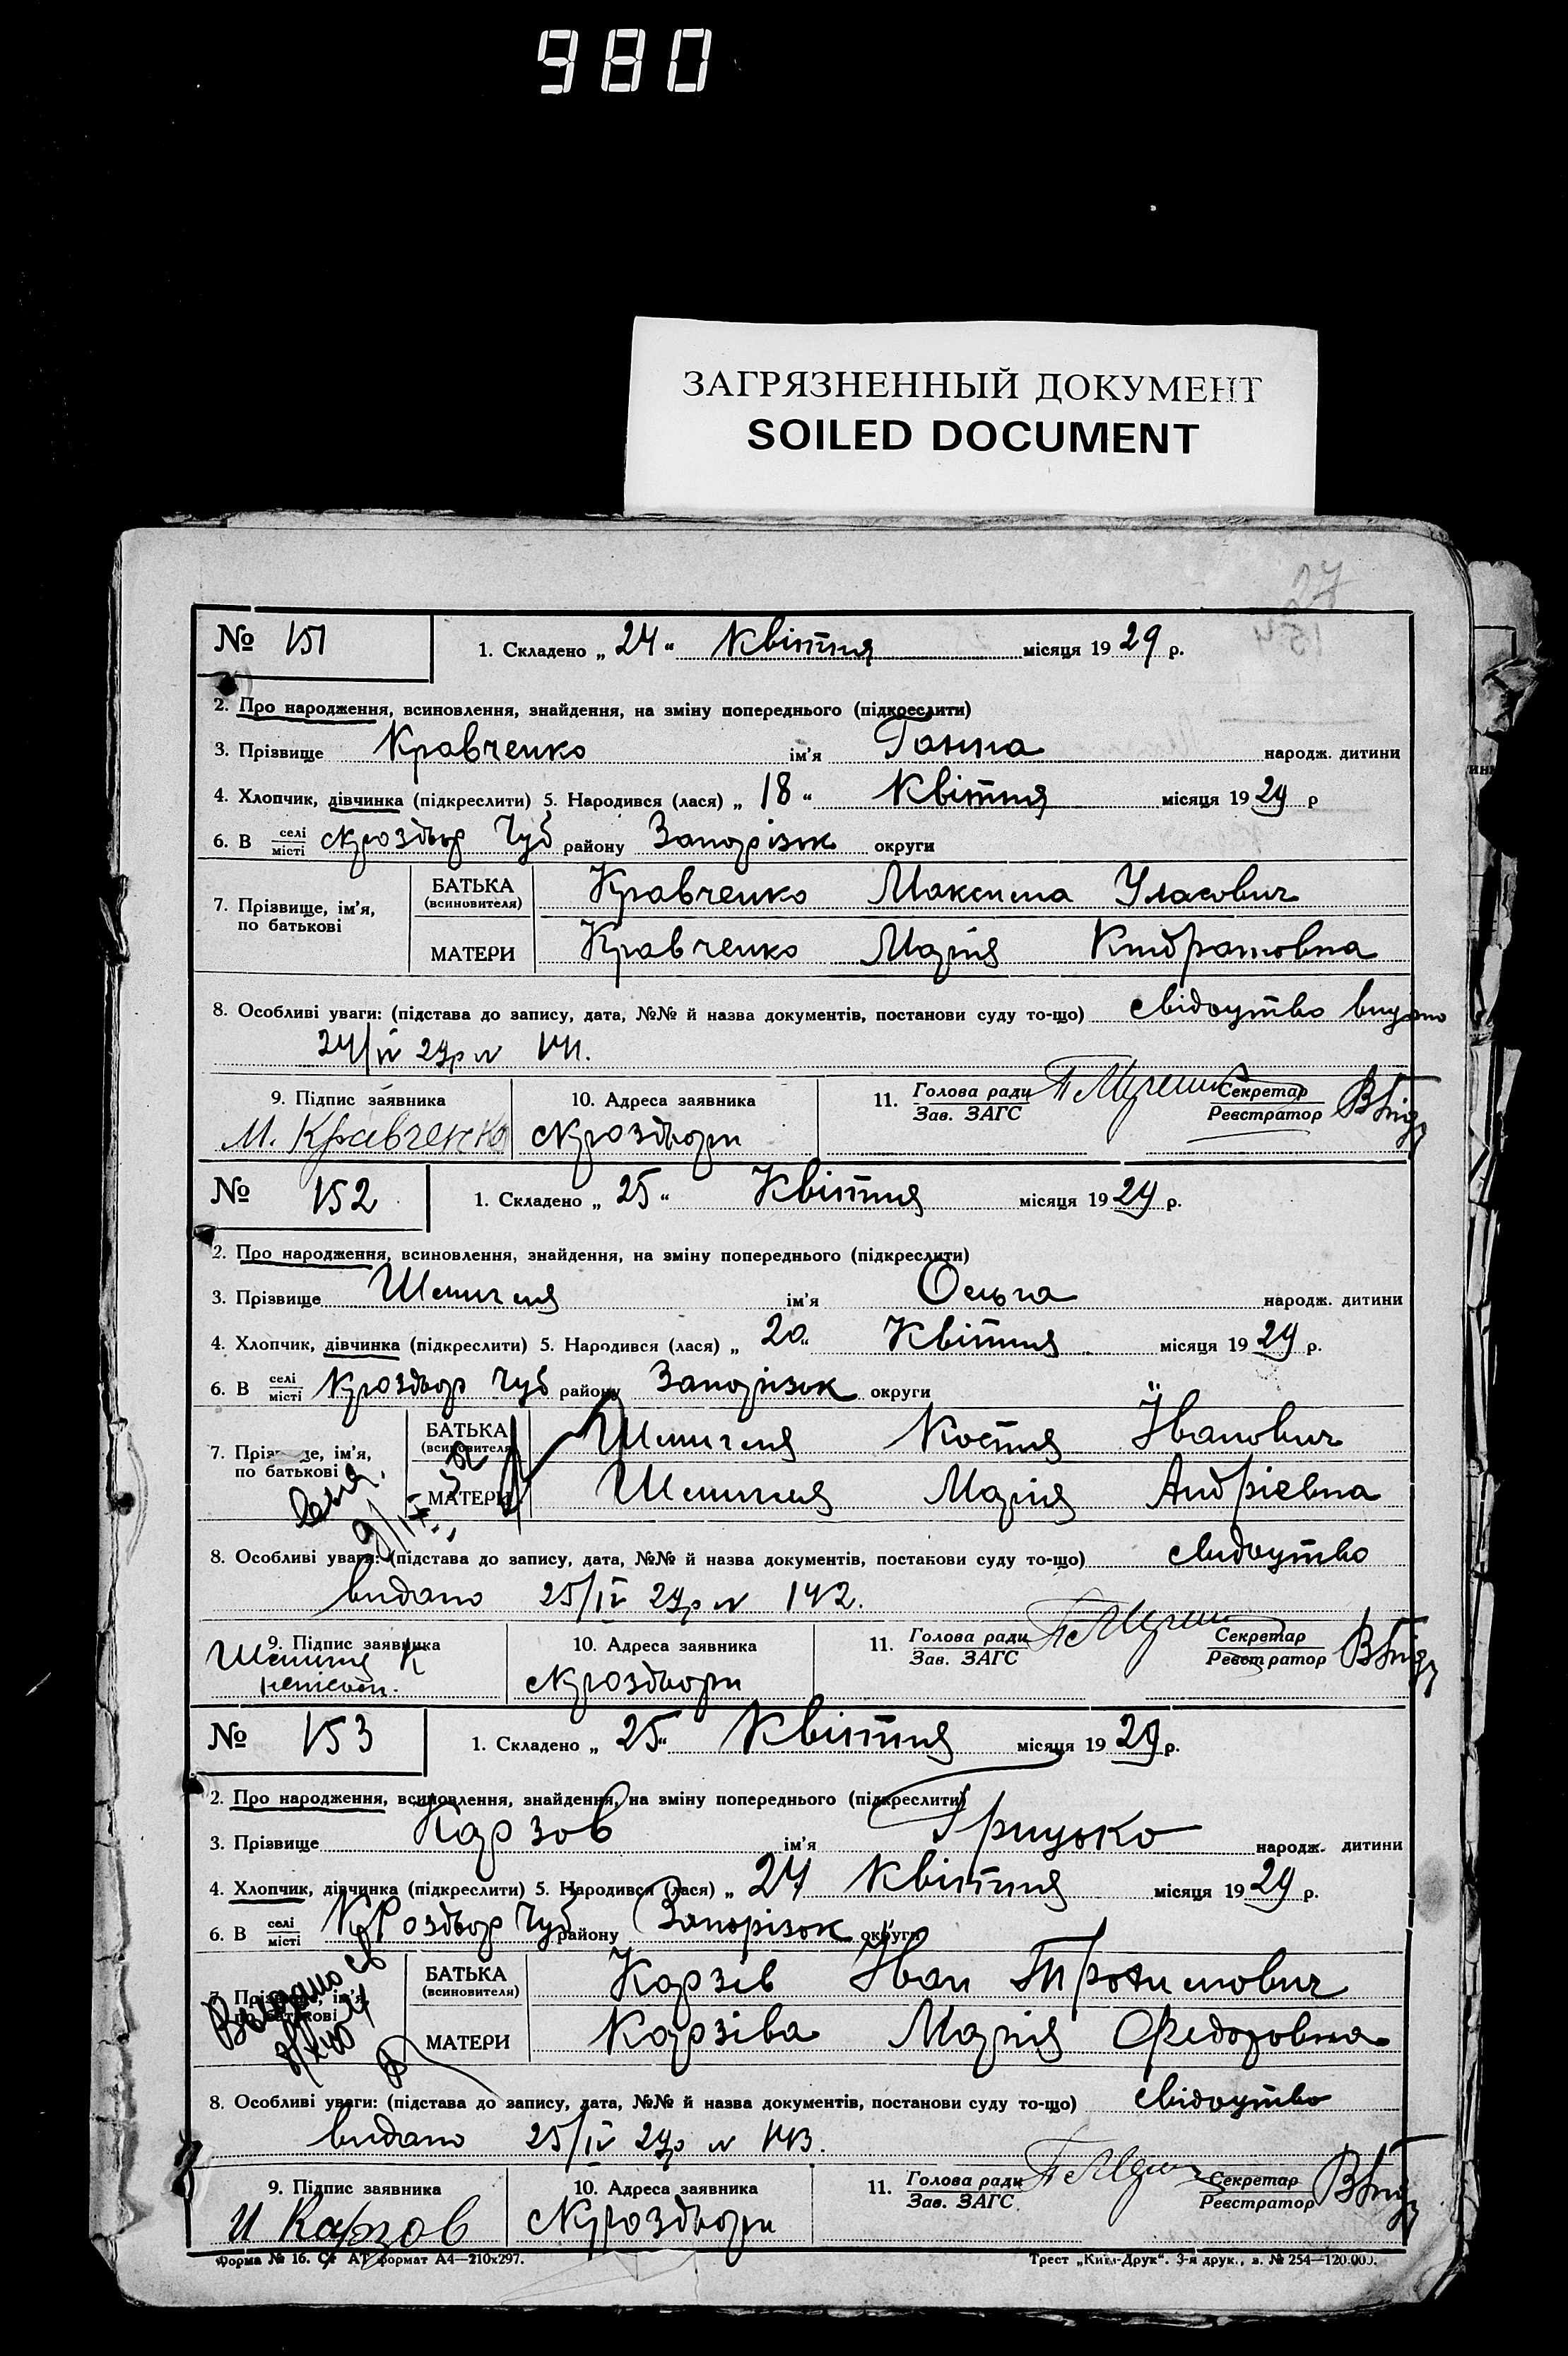 980
ЗАГРЯЗНЕННЫЙ ДОКУМЕНТ
SOILED DOCUMENT
27
№ 151 1. Складено „ 24 “ Квітня місяця 19 29 р.
2. Про народження, всиновлення, знайдення, на зміну попереднього (підкреслити)
3. Прізвище Кравченко ім'я Ганна народж. дитини
4. Хлопчик, дівчинка (підкреслити) 5. Народився (лася) „ 18 “ Квітня місяця 19 29 р
6. В селі місті Чуб району Запорізьк округи
7. Прізвище, ім'я, по батькові
БАТЬКА (всиновителя) Кравченко Максима Уласович
МАТЕРИ Кравченко Марія Кіндратовна
8. Особливі уваги: (підстава до запису, дата, №№ й назва документів, постанови суду то-що) свідоцтво видано
24/IV 29р N 141.
9. Підпис заявника 10. Адреса заявника 11. Голова ради Зав. ЗАГС Секретар Реєстратор
М. Кравченко
№ 152 1. Складено „ 25 “ Квітня місяця 19 29 р.
2. Про народження, всиновлення, знайдення, на зміну попереднього (підкреслити)
3. Прізвище ім'я Ольга народж. дитини
4. Хлопчик, дівчинка (підкреслити) 5. Народився (лася) „ 20 “ Квітня місяця 19 29 р.
6. В селі місті Чуб району Запорізьк округи
7. Прізвище, ім'я, по батькові
БАТЬКА (всиновителя) Костя Іванович
МАТЕРИ Марія Андрієвна
8. Особливі уваги: (підстава до запису, дата, №№ й назва документів, постанови суду то-що) свидоцтво
видано 25/IV 29р N 142.
9. Підпис заявника 10. Адреса заявника 11. Голова ради Зав. ЗАГС Секретар Реєстратор
№ 153 1. Складено „ 25 “ Квітня місяця 19 29 р.
2. Про народження, всиновлення, знайдення, на зміну попереднього (підкреслити)
3. Прізвище Карзов ім'я Грицько народж. дитини
4. Хлопчик, дівчинка (підкреслити) 5. Народився (лася) „ 24 Квітня місяця 19 29 р.
6. В селі місті Чуб району Запорізьк округи
7. Прізвище, ім'я, по батькові
БАТЬКА (всиновителя) Карзів Іван Трохимович
МАТЕРИ Карзіва Марія Федоровна
8. Особливі уваги: (підстава до запису, дата, №№ й назва документів, постанови суду то-що) свідоцтво
видано 25/IV 29р N 143.
9. Підпис заявника 10. Адреса заявника 11. Голова ради Зав. ЗАГС. Секретар Реєстратор
И Карзов
Форма № 16. Ст АТ формат А4—210х297. Трест „Київ-Друк“. 3-я друк., з. № 254—120.000.